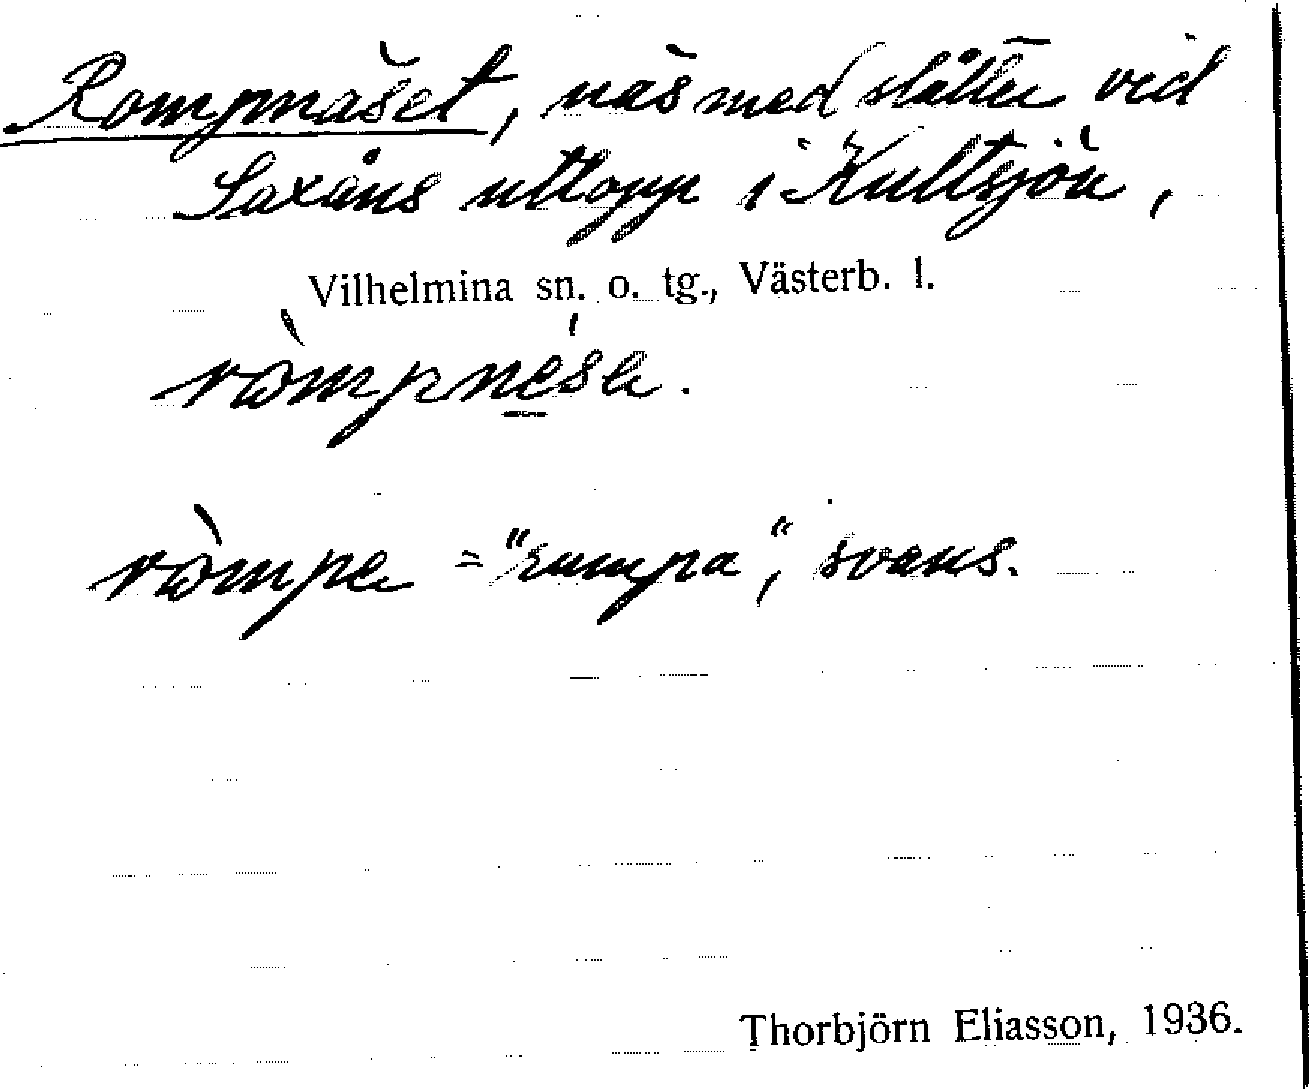 Rompnäset, näs med slåtter vid
Saxåns utlopp i Kultsjön,
Vilhelmina sn. o. tg., Västerb. l.
ròmpnésa.
ròmpa = "rumpa", svans.
Thorbjörn Eliasson, 1936.